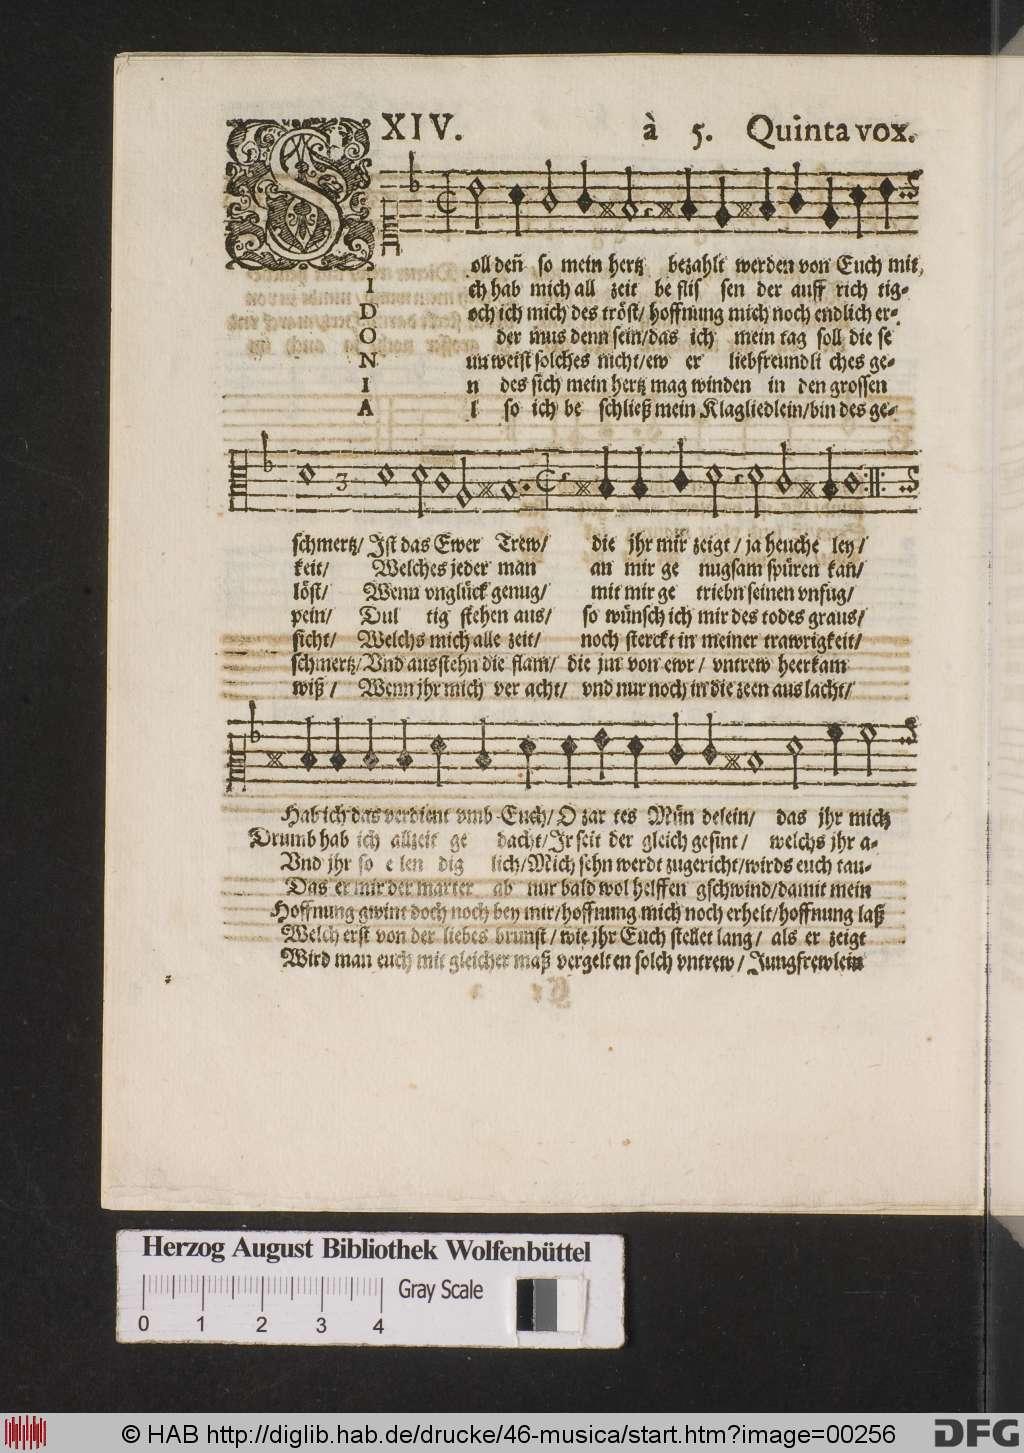 XIV. à 5. Quinta vox.
S oll deñ so mein hertz bezahlt werden von Euch mit,
I ch hab mich all zeit be flis sen der auff rich tig-
D och ich mich des tröst/ hoffnung mich noch endlich er-
O der mus denn sein/das ich mein tag soll die se
N un weist solches nicht/ew er liebfreundli ches ge-
I n des sich mein hertz mag winden in den grossen
A l so ich be schließ mein Klagliedlein/bin des ge-
3
schmertz/ Jst das Ewer Trew/ die jhr mir zeigt/ ja heuche ley/
keit/ Welches jeder man an mir ge nugsam spüren kan/
löst/ Wenn vnglück genug/ mit mir ge triebn seinen vnfug/
pein/ Dul tig stehen aus/ so wünsch ich mir des todes graus/
sicht/ Welchs mich alle zeit/ noch sterckt in meiner trawrigkeit/
schmertz/Vnd ausstehn die flam/ die jm von ewr/ vntrew heerkam
wiß/ Wenn jhr mich ver acht/ vnd nur noch in die zeen aus lacht/
Hab ich das verdient vmb Euch/ O zar tes Mün delein/ das jhr mich
Drumb hab ich allzeit ge dacht/Jr seit der gleich gesint/ welchs jhr a-
Vnd jhr so e len dig lich/Mich sehn werdt zugericht/wirds euch tau-
Das er mir der marter ab nur bald wol helffen gschwind/damit mein
Hoffnung gwint doch noch bey mir/hoffnung mich noch erhelt/hoffnung laß
Welch erst von der liebes brunst/ wie jhr Euch stellet lang/ als er zeigt
Wird man euch mit gleicher maß vergelt en solch vntrew/ Jungfrewlein
Herzog August Bibliothek Wolfenbüttel
Gray Scale
0 1 2 3 4
© HAB http://diglib.hab.de/drucke/46-musica/start.htm?image=00256
DFG